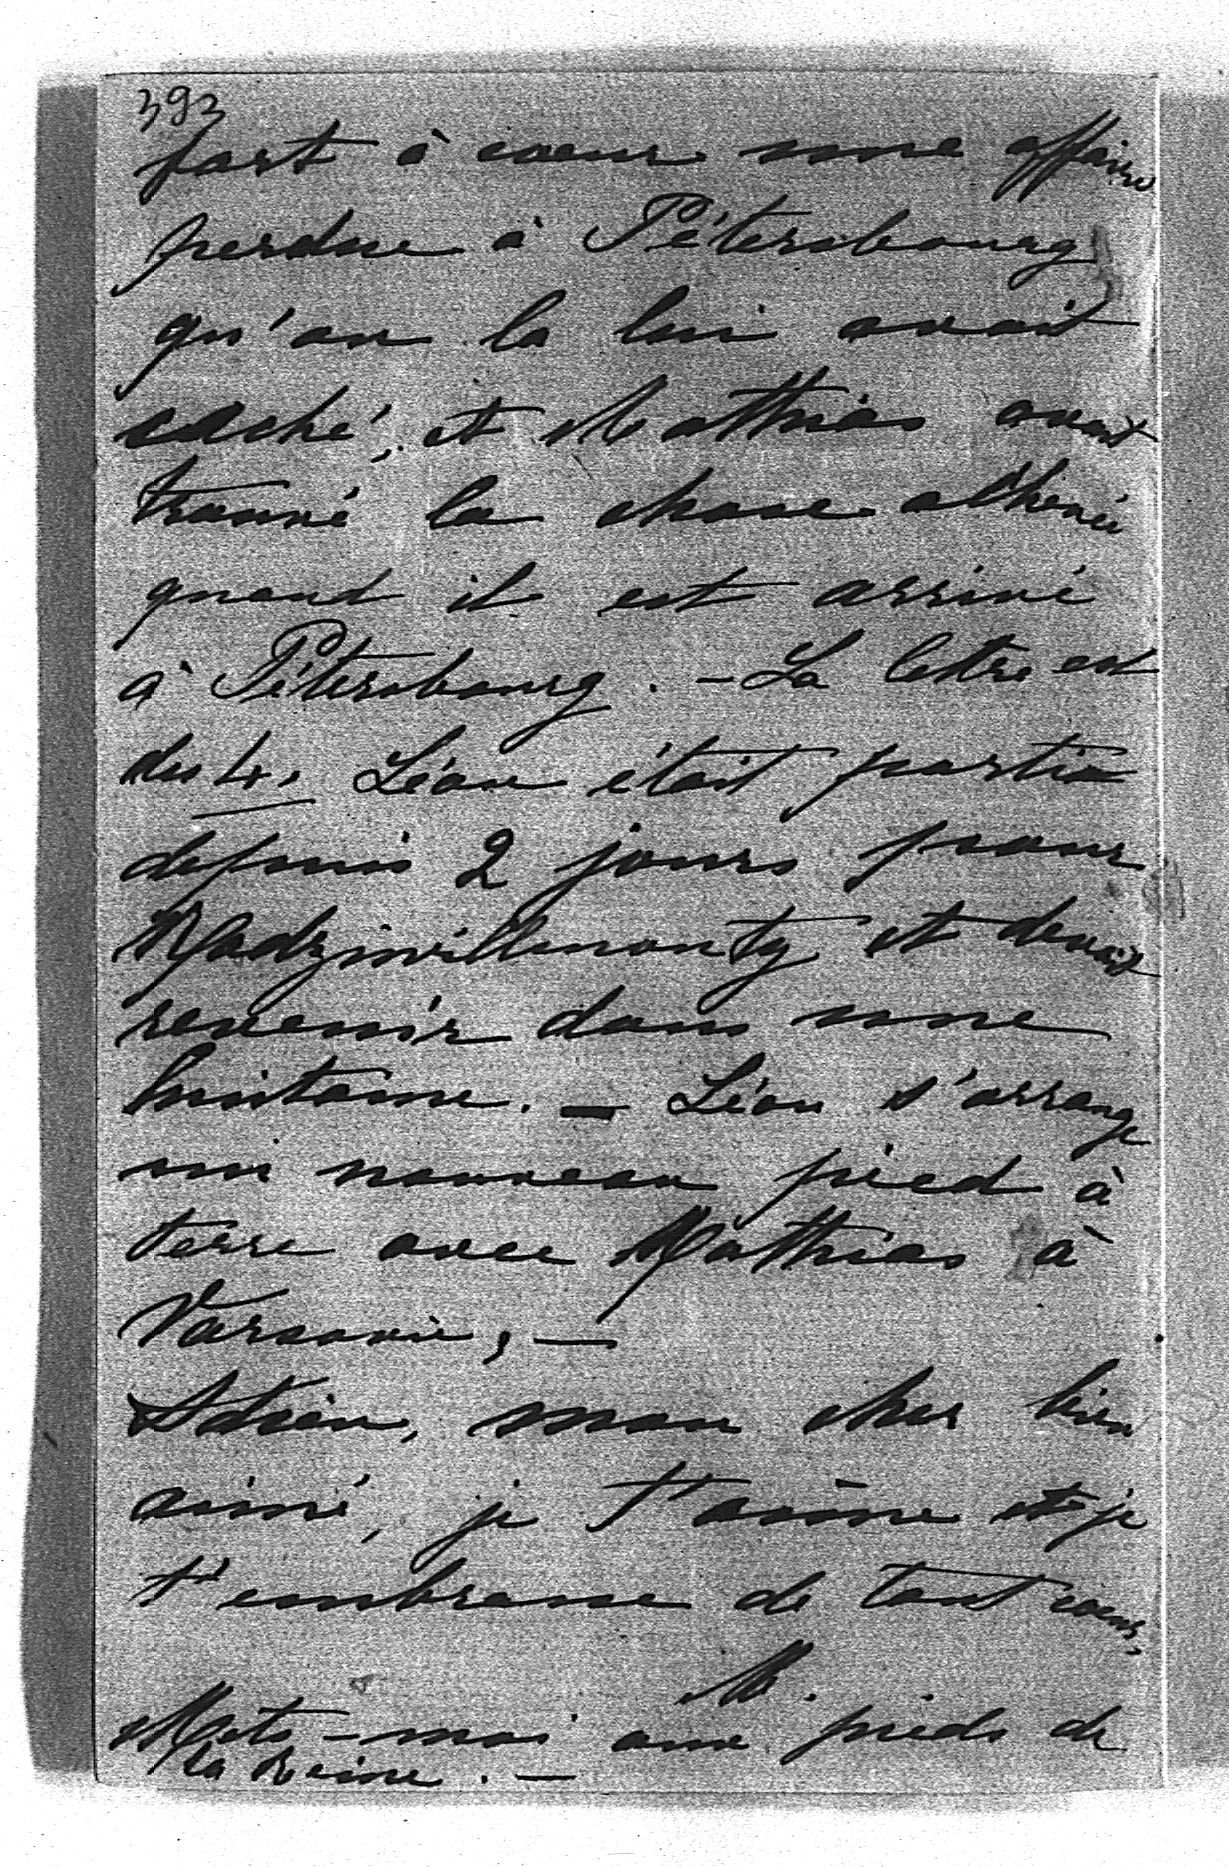 393
fort à coeur une affaire
perdue à Pétersbourg
qu'on la lui avait
caché, et Mathias avait
trouvé la chose
quand il est arrivé
à Pétersbourg. - La lettre est
du 4. Léon était parti
depuis 2 jours pour
Radziwillmonty et devait
revenir dans une
huitaine. - Léon s'arrange
un nouveau pied à
terre avec Mathias à
Varsovie, -
Adieu, mon cher bien
aimé, je t'aime et je
t'embrasse de tout coeur,
M.
Mets-moi aux pieds de
la Reine. -